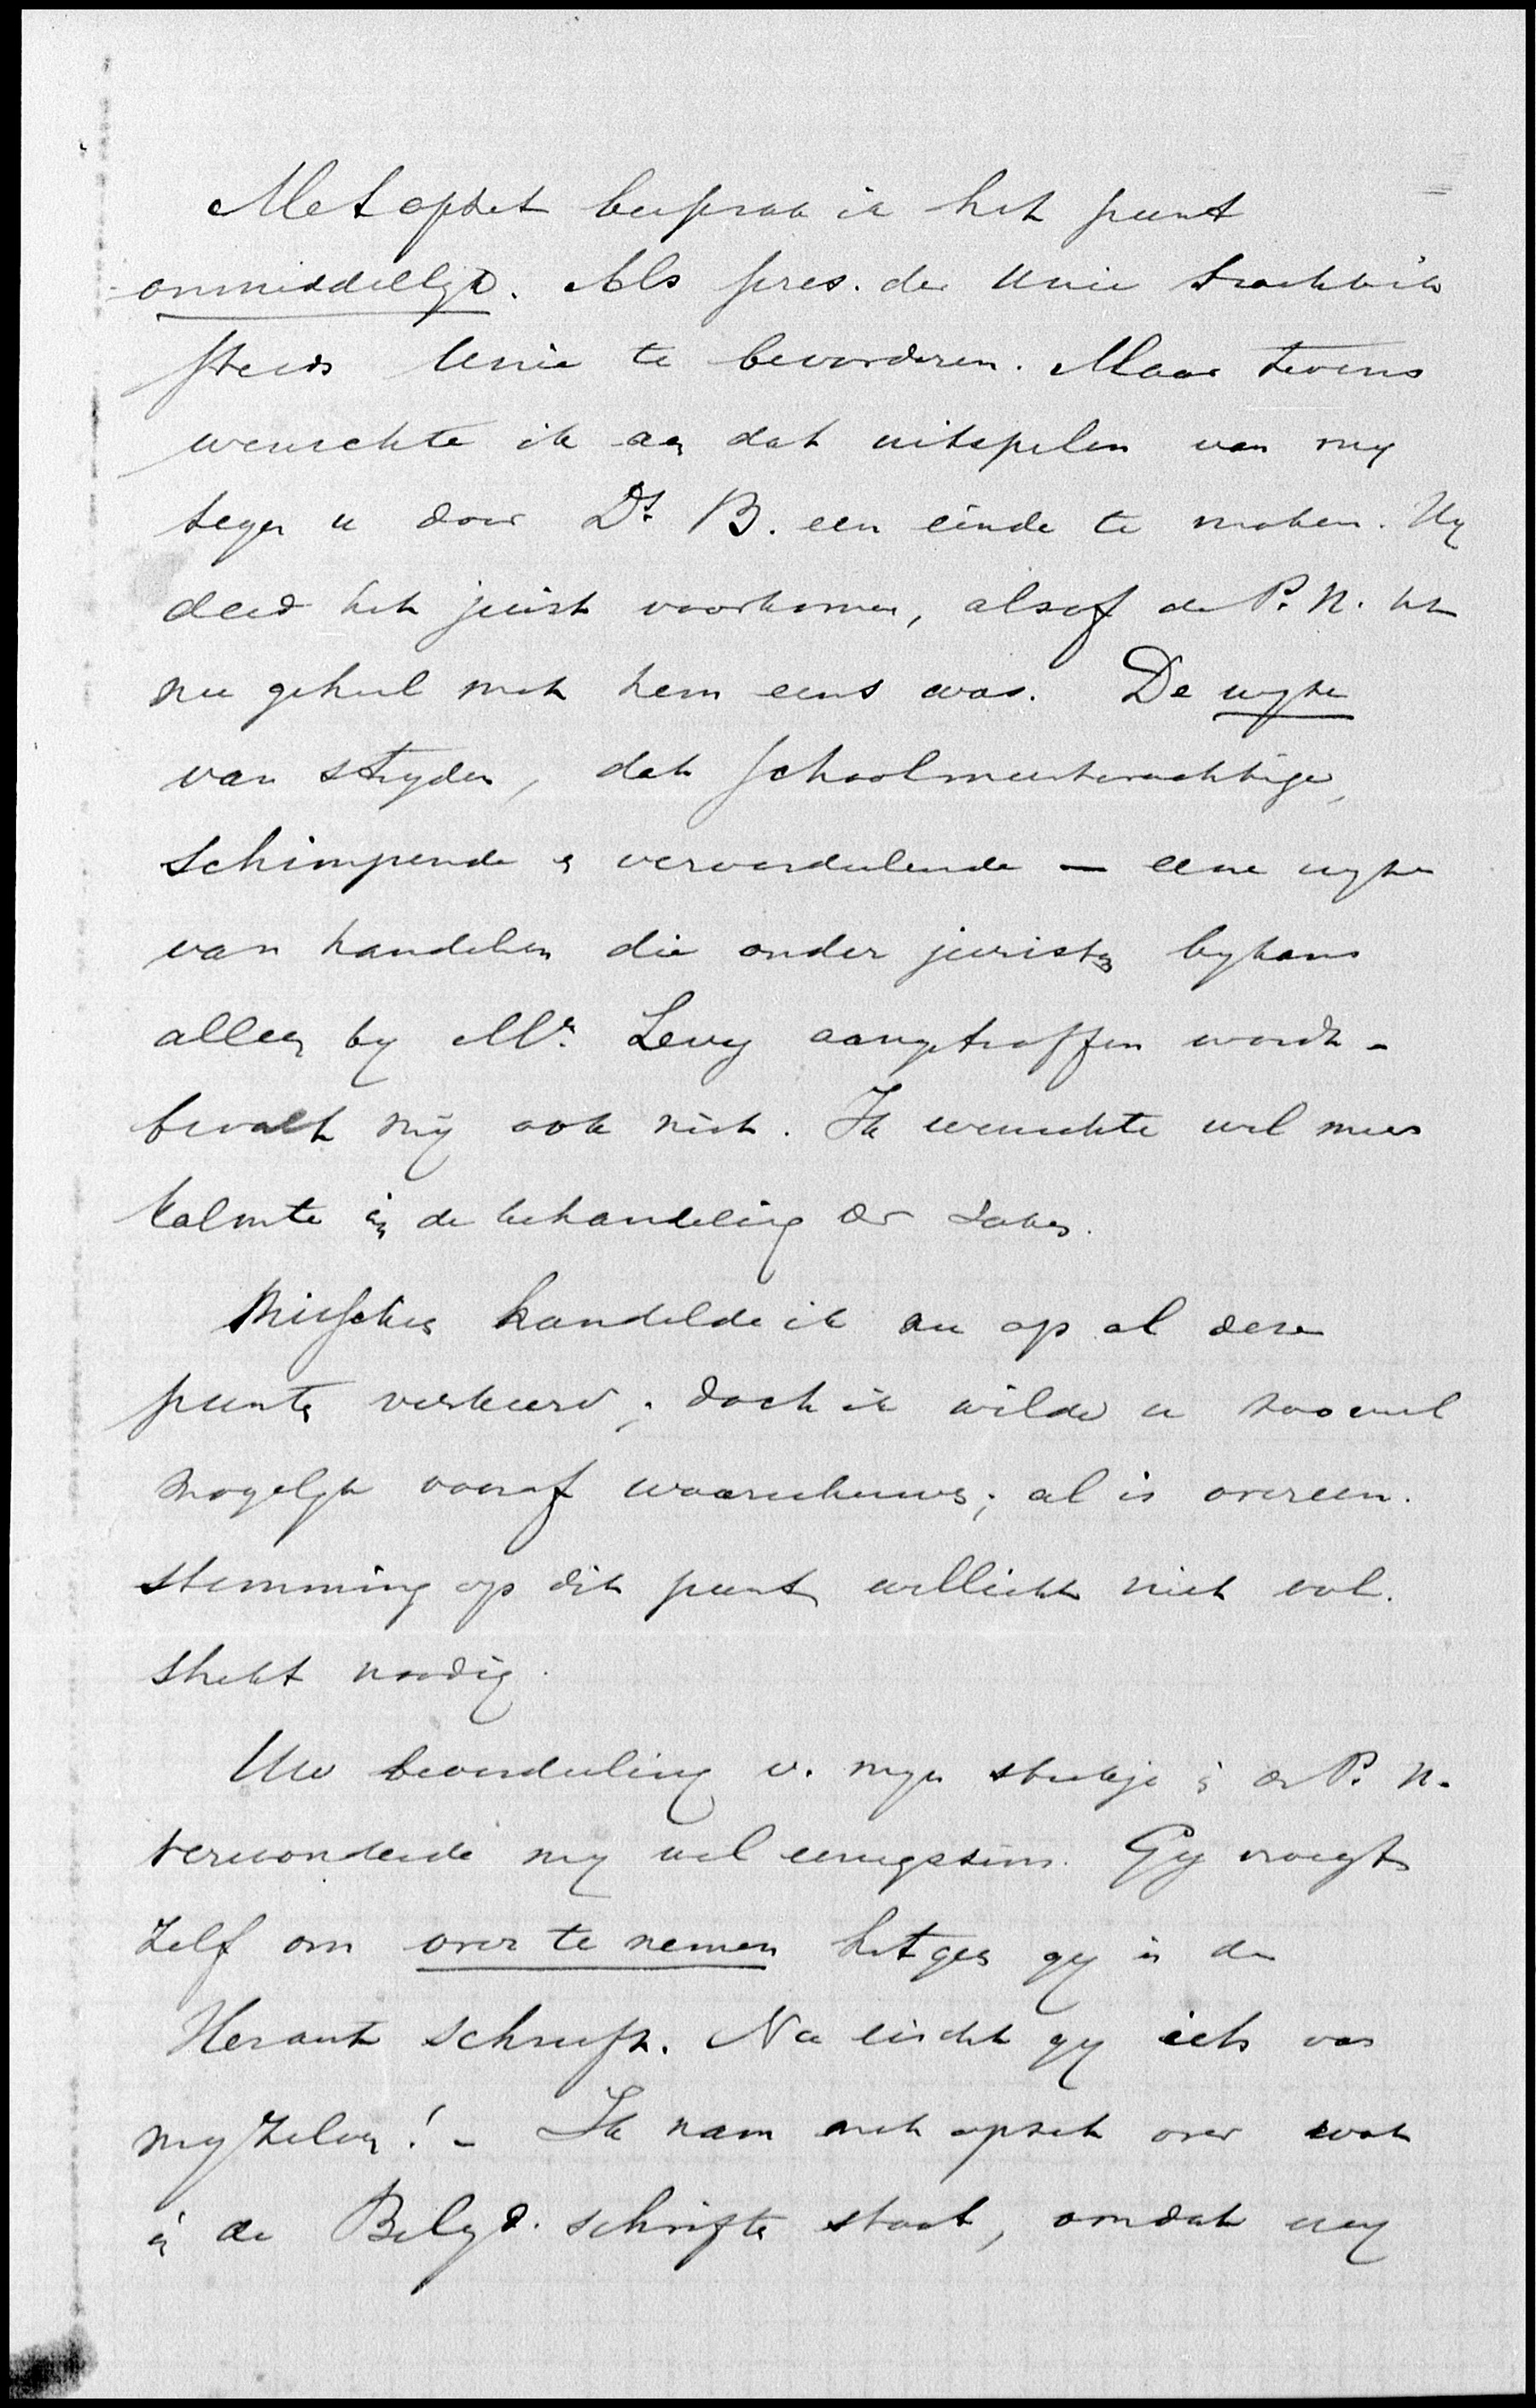 Met opzet besprak ik het punt
onmiddellijk. Als pres. der Unie tracht ik
steeds Unie te bevorderen. Maar tevens
wenschte ik aan dat uitspelen van mij
tegen u door Ds. B. een einde te maken. Hij
deed het juist voorkomen, alsof de P. N. het
nu geheel met hem eens was. De wijze
van strijden, dat schoolmeesterachtige,
schimpende en veroordeelende — eene wijze
van handelen die onder juristen bijkans
alleen bij Mr. Levy aangetroffen wordt -
bevalt mij ook niet. Ik wenschte wel meer
kalmte in de behandeling der zaken.
Misschien handelde ik nu op al deze
punten verkeerd; doch ik wilde u zooveel
mogelijk vooraf waarschuwen; al is overeen-
stemming op dit punt wellicht niet vol-
strekt noodig.
Uw beoordeeling v. mijn stukje in de P. N.
verwonderde mij wel eenigszins. Gij vraagt
zelf om over te nemen hetgeen gij in de
Heraut schreeft. Nu eischt gij iets van
mijzelven! - Ik nam met opzet over wat
in de Belijd. schriften staat, omdat wij